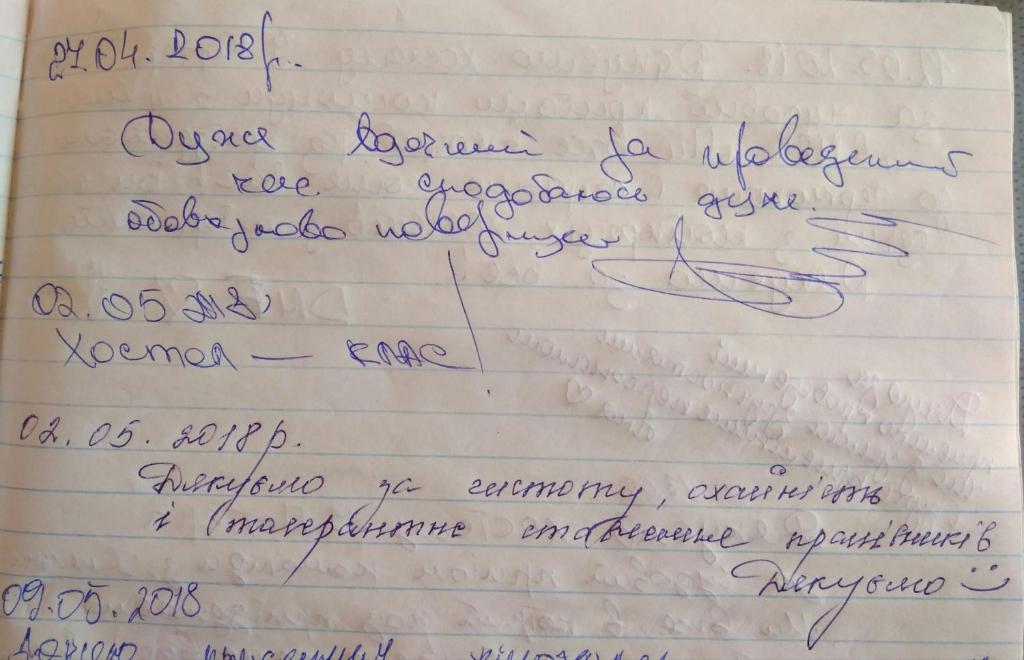 27.04.2018р.
Дуже вдячний за проведений
час. сподобалось дуже.
обовязково повернусь
02.05 2018,
Хостел — клас!
02.05.2018р.
Дякуємо за чистоту, охайність
і толерантне ставлення працівників
Дякуємо :)
09.05.2018